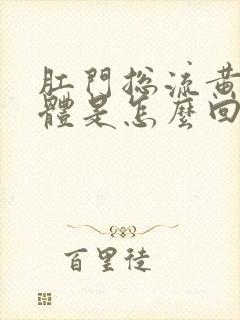 肛門總流黃
體是怎麼回
百里徒